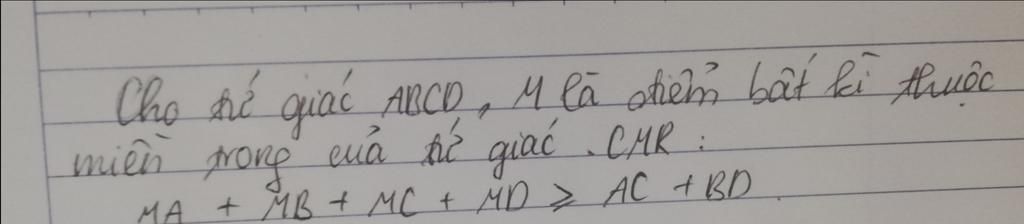 Cho tứ giác ABCD, M là điểm bất kì thuộc
miền trong của tứ giác. CMR:
MA + MB + MC + MD ≥ AC + BD